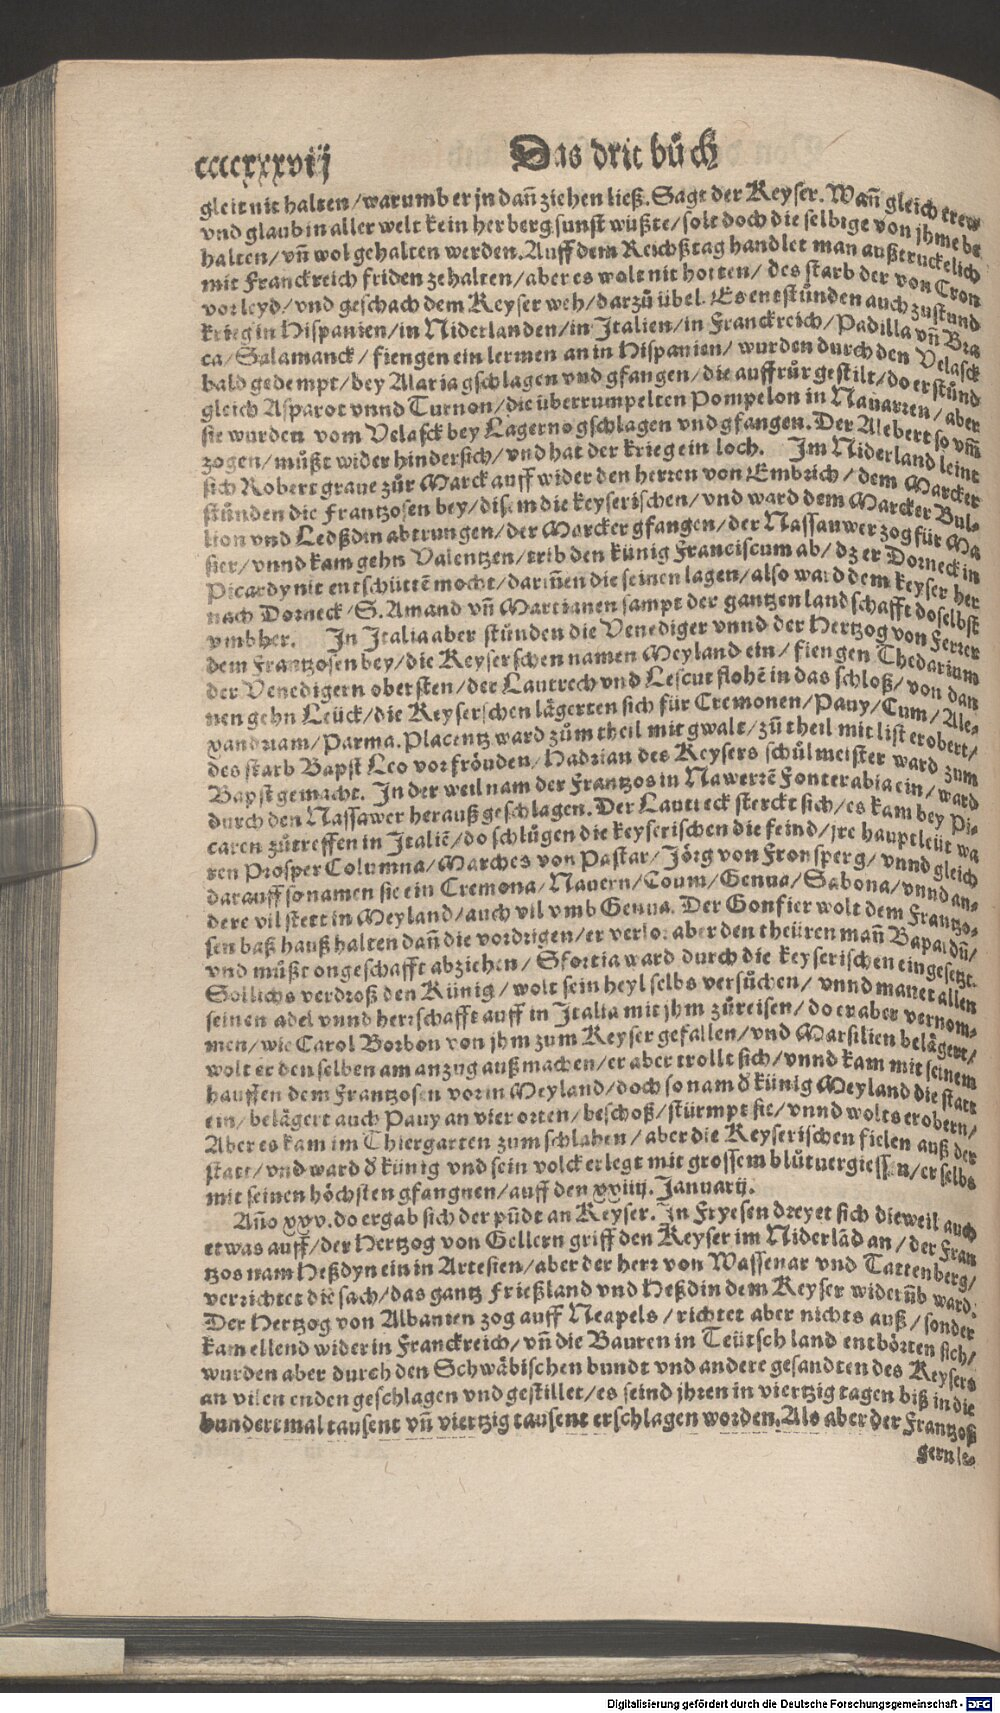 ccccxxxvij Das drit bůch
gleit nit halten / warumb er jn dañ ziehen ließ. Sagt der Keyser. Wañ gleich trew
vnd glaub in aller welt kein herberg sunst wüßte / solt doch die selbige von jhme be
halten / vñ wol gehalten werden. Auff dem Reichßtag handlet man außtruckelich
mit Franckreich friden zehalten / aber es wolt nit hotten / des starb der von Cron
vor leyd / vnd geschach dem Keyser weh / darzů übel. Es entstůnden auch zustund
krieg in Hispanien / in Niderlanden / in Italien / in Franckreich / Padilla vñ Bra
ca / Salamanck / fiengen ein lermen an in Hispanien / wurden durch den Velasck
bald gedempt / bey Alaria gschlagen vnd gfangen / die auffrůr gestilt / do erstůnd
gleich Asparot vnnd Turnon / die überrumpelten Pompelon in Nauarren / aber
sie wurden vom Velasck bey Lagerno gschlagen vnd gfangen. Der Alebert so vm̃
zogen / můßt wider hindersich / vnd hat der krieg ein loch. Im Niderland leint
sich Robert graue zůr Marck auff wider den herren von Embrich / dem Marcker
stůnden die Frantzosen bey / disem die keyserischen / vnd ward dem Marcker Bul-
lion vnd Ledßdin abtrungen / der Marcker gfangen / der Nassauwer zog für Ma
sier / vnnd kam gehn Valentzen / trib den künig Franciscum ab / dz er Dorneck in
Picardy nit entschüttẽ mocht / dariñen die seinen lagen / also ward dem keyser her
nach Dorneck / S. Amand vñ Martianen sampt der gantzen landschafft doselbst
vmbher. In Italia aber stůnden die Venediger vnnd der Hertzog von Ferrer
dem Frantzosen bey / die Keyserschen namen Meyland ein / fiengen Thedarium
der Venedigern obersten / der Lautrech vnd Lescut flohẽ in das schloß / von dan
nen gehn Leück / die Keyserschen lägerten sich für Cremonen / Pauy / Cum / Ale-
xandriam / Parma. Placentz ward zům theil mit gwalt / zů theil mit list erobert /
des starb Bapst Leo vor fröuden / Hadrian des Keysers schůlmeister ward zum
Bapst gemacht. In der weil nam der Frantzos in Nawerrẽ Fonterabia ein / ward
durch den Nassawer herauß geschlagen. Der Lautreck sterckt sich / es kam bey Pi-
caren zůtreffen in Italiẽ / do schlůgen die keyserischen die feind / jre hauptleüt wa
ren Prosper Columna / Marches von Pastar / Jörg von Fronsperg / vnnd gleich
darauff so namen sie ein Cremona / Nauern / Coum / Genua / Sabona / vnnd an-
dere vil stett in Meyland / auch vil vmb Genua. Der Gonfier wolt dem Frantzo-
sen baß hauß halten dañ die vordrigen / er verlor aber den theüren mañ Bapardũ /
vnd můßt ongeschafft abziehen / Sfortia ward durch die keyserischen eingesetzt.
Sollichs verdroß den Künig / wolt sein heyl selbs versůchen / vnnd manet allen
seinen adel vnnd herrschafft auff in Italia mit jhm zůreisen / do er aber vernom-
men / wie Carol Borbon von jhm zum Keyser gefallen / vnd Marsilien belägert /
wolt er den selben am anzug auß machen / er aber trollt sich / vnnd kam mit seinem
hauffen dem Frantzosen vor in Meyland / doch so nam d̕ künig Meyland die statt
ein / belägert auch Pauy an vier orten / beschoß / stürmpt sie / vnnd wolts erobern /
Aber es kam im Thiergarten zum schlahen / aber die Keyserischen fielen auß der
statt / vnd ward d̕ künig vnd sein volck erlegt mit grossem blůtuergiessen / er selbs
mit seinen höchsten gfangnen / auff den xxiiij. Januarij.
Año xxv. do ergab sich der pũdt an Keyser. In Fryesen dreyet sich dieweil auch
etwas auff / der Hertzog von Gellern griff den Keyser im Niderlãd an / der Fran
tzos nam Heßdyn ein in Artesien / aber der herr von Wassenar vnd Tattenberg /
verrichtet die sach / das gantz Frießland vnd Heßdin dem Keyser widerũb ward.
Der Hertzog von Albanien zog auff Neapels / richtet aber nichts auß / sonder
kam ellend wider in Franckreich / vñ die Bauren in Teütschland entbörten sich /
wurden aber durch den Schwäbischen bundt vnd andere gesandten des Keysers
an vilen enden geschlagen vnd gestillet / es seind jhren in viertzig tagen biß in die
hundert mal tausent vñ viertzig tausent erschlagen worden. Als aber der Frantzoß
gern le-
Digitalisierung gefördert durch die Deutsche Forschungsgemeinschaft - DFG